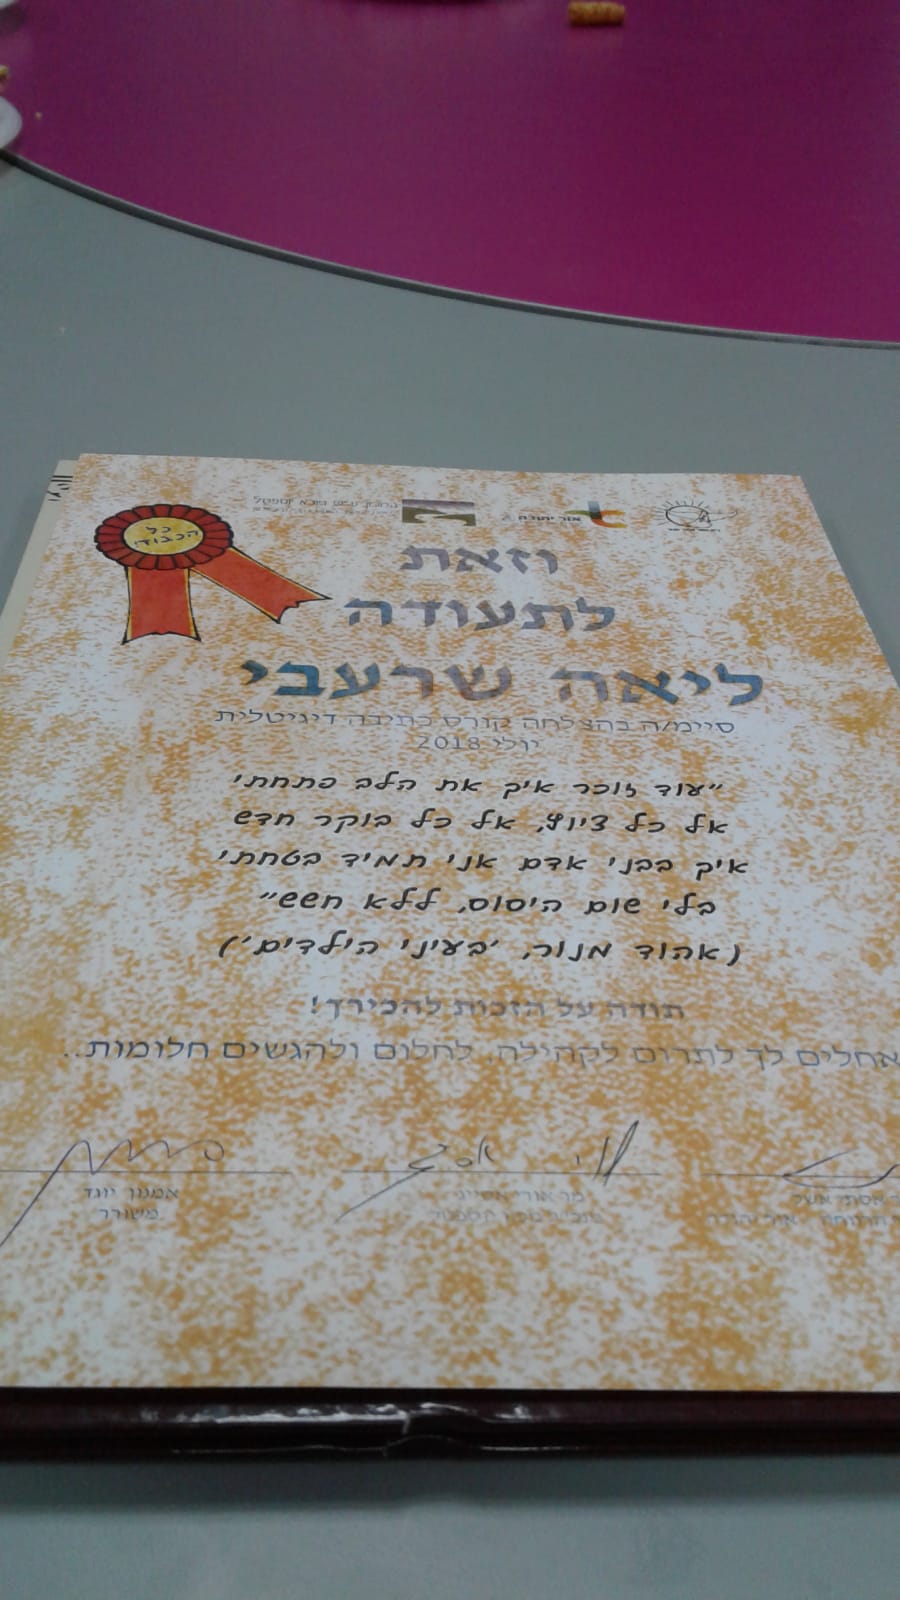 אור יהודה
כל
הכבוד!
וזאת
לתעודה
ליאה שרעבי
סיימ/ה בהצלחה קורס כתיבה דיגיטלית
יולי 2018
"עוד זוכר איך את הלב פתחתי
אל כל ציוץ, אל כל בוקר חדש
איך בבני אדם אני תמיד בטחתי
בלי שום היסוס, ללא חשש"
(אהוד מנור, 'בעיני הילדים')
תודה על הזכות להכירך!
אחלים לך לתרום לקהילה, לחלום ולהגשים חלומות..
אמנון יוגד
משורר